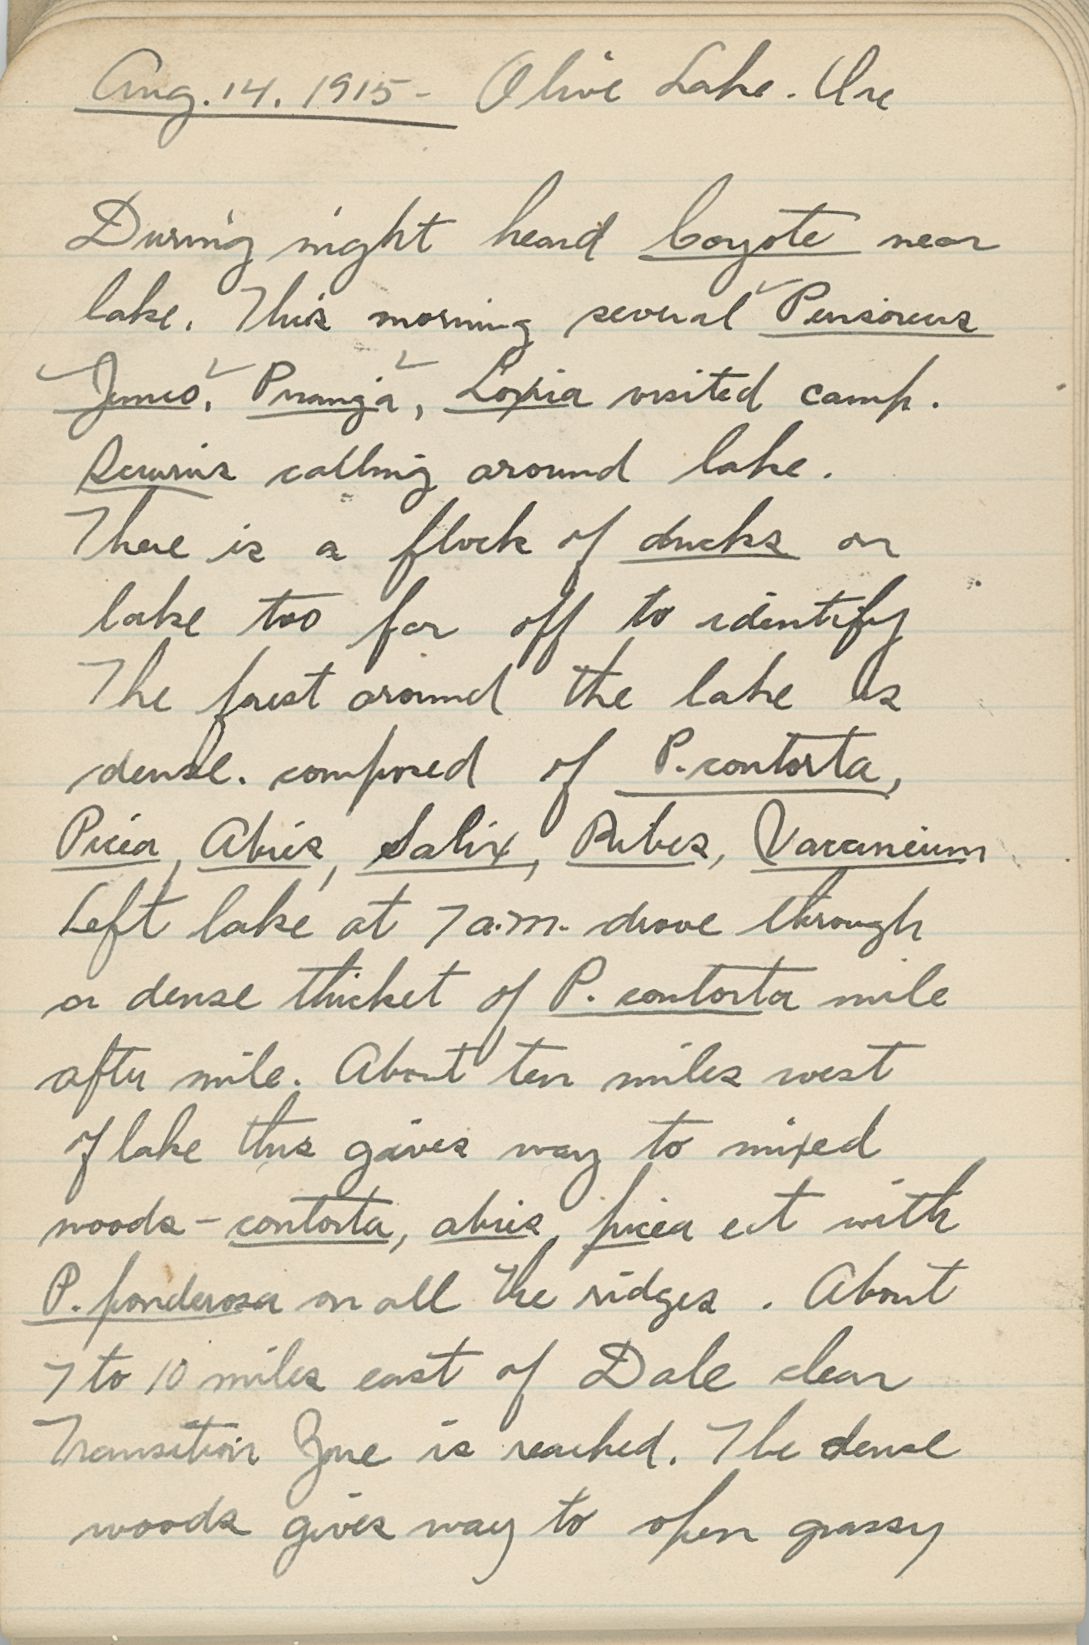 Aug. 14. 1915 - Olive Lake. Ore
During night heard Coyote near
lake. This morning several Perisoreus
Junco, Piranga, Loxia visited camp.
Sciurus calling around lake.
There is a flock of ducks on
lake too far off to identify
The forest around the lake is
dense. composed of P. contorta,
Picea, Abies, Salix, Ribes, Vaccineium
Left lake at 7 a.m. drove through
a dense thicket of P. contorta mile
after mile. About ten miles west
of lake this gives way to mixed
woods - contorta, abies, picea ect with
P. ponderosa on all the ridges. About
7 to 10 miles east of Dale clear
Transition Zone is reached. The dense
woods gives way to open grassy